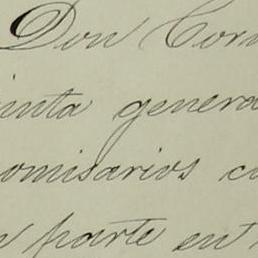 Don Cor
inta genera
omisarios c
parte en